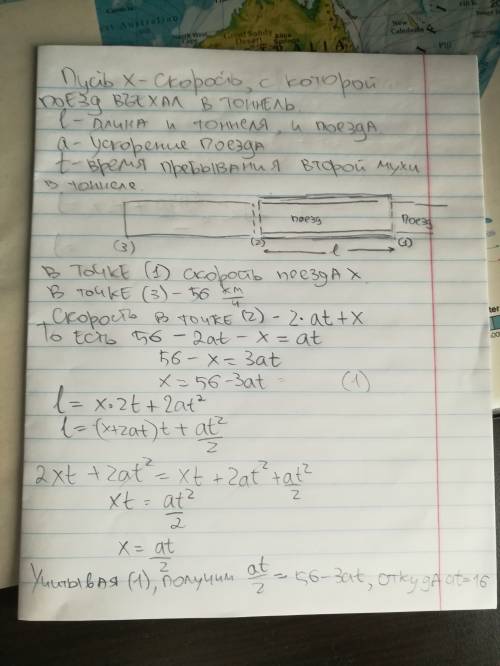 Пусть x - скорость, с которой
поезд въехал в тоннель.
l - длина и тоннеля, и поезда
a - ускорение поезда
t - время пребывания второй мухи
в тоннеле.
поезд
поезд
(3) (2) l (1)
В точке (1) скорость поезда x
В точке (3) - 56 км/ч
Скорость в точке (2) - 2·at+x
То есть 56 - 2at - x = at
56 - x = 3at
x = 56 - 3at (1)
l = x·2t + 2at²
l = (x+2at)t + at²/2
2xt + 2at² = xt + 2at² + at²/2
xt = at²/2
x = at/2
Учитывая (1), получим at/2 = 56 - 3at, откуда at = 16